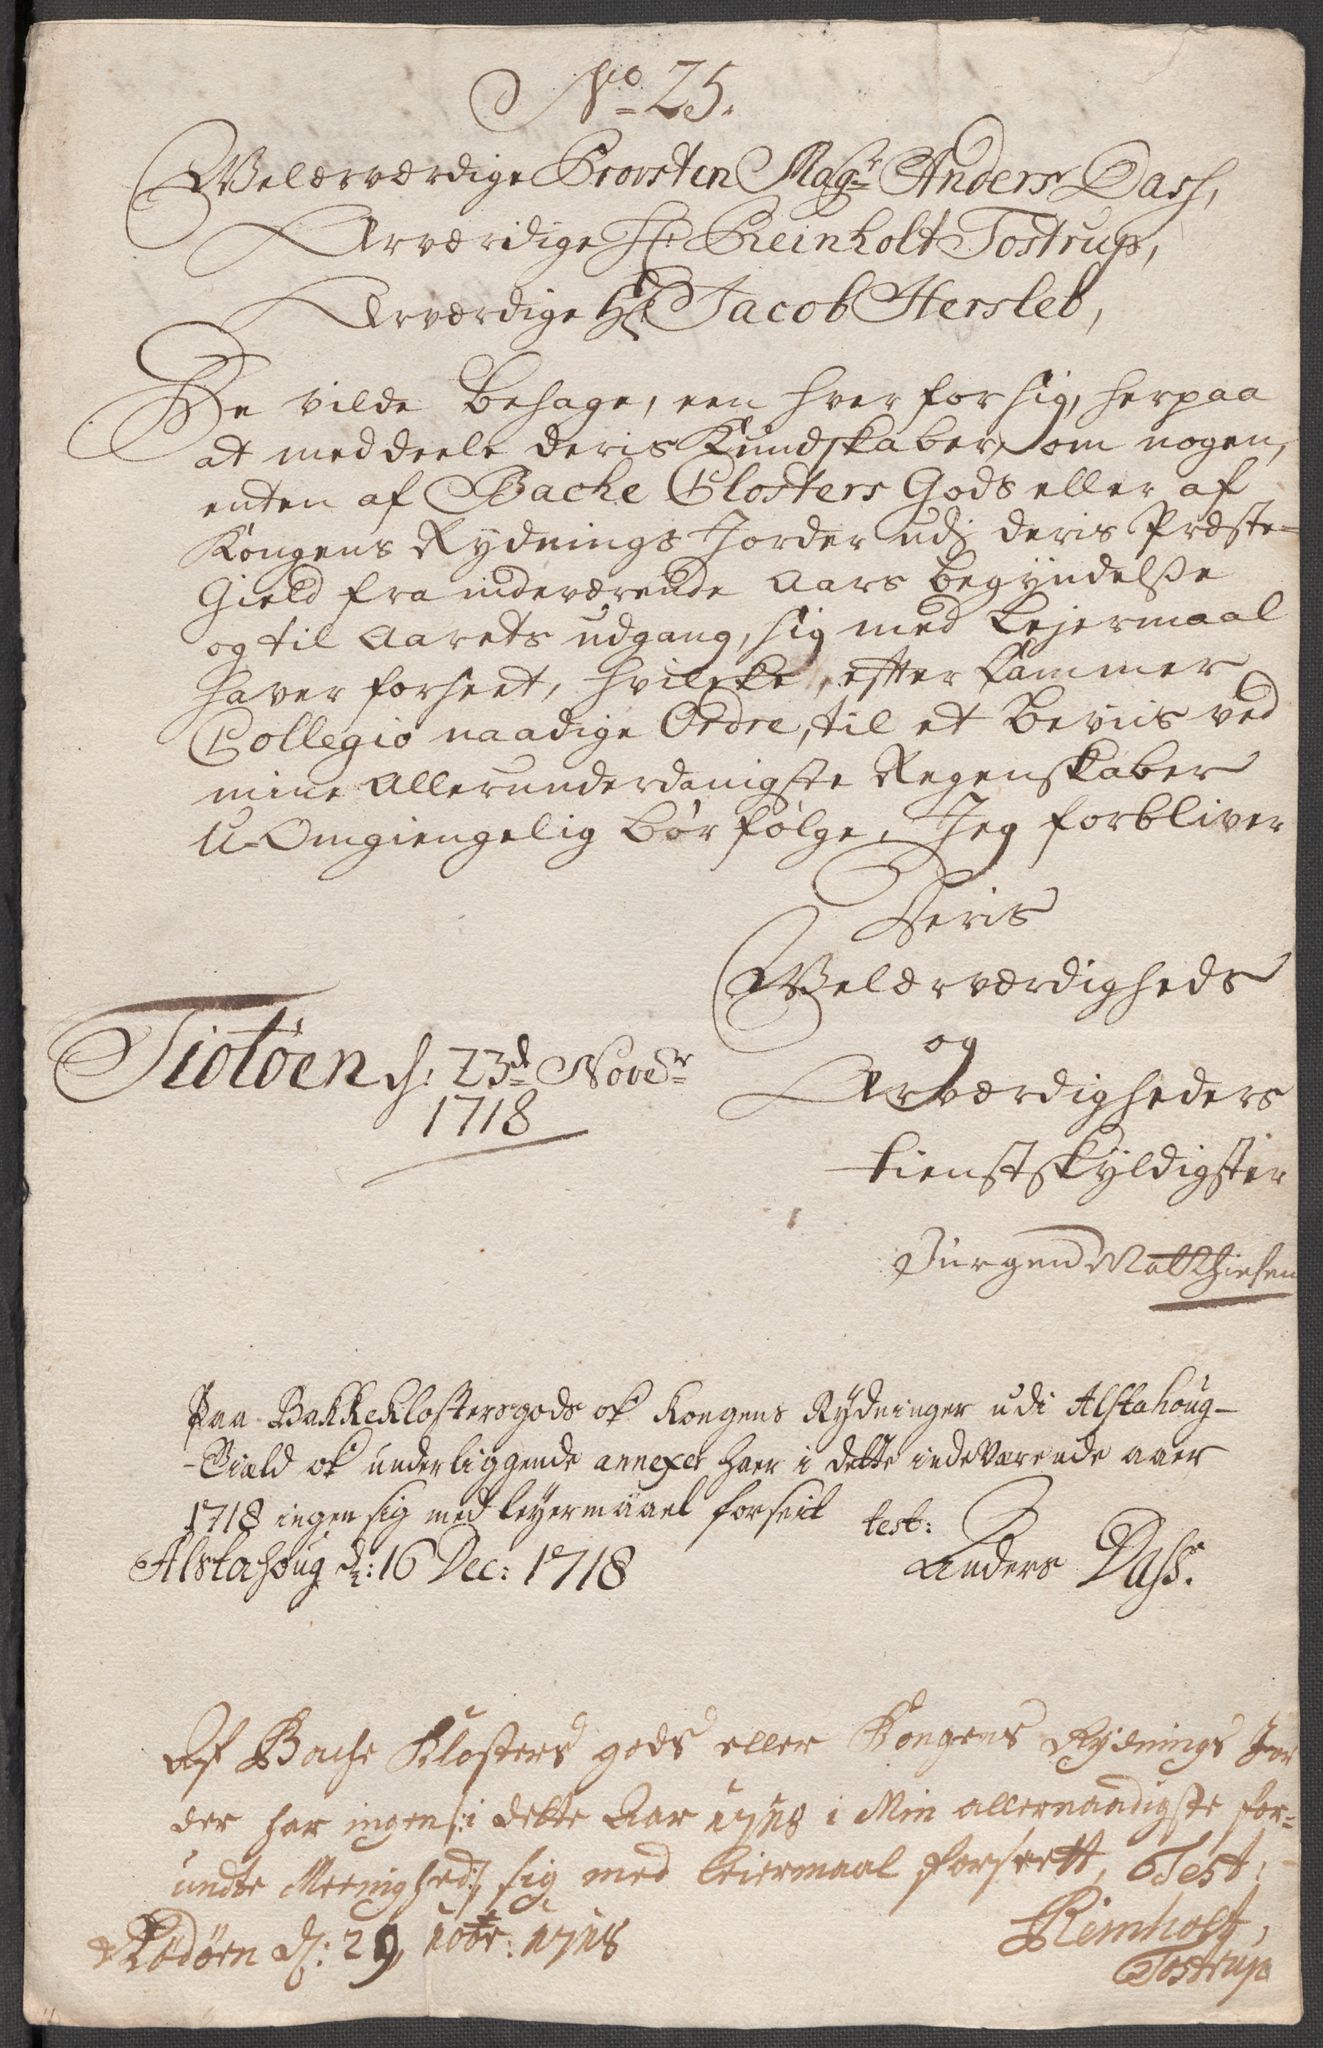 No 25.
Welærværdige Provsten Magr Anders Dass,
Ærværdige Hr Reinholt Tostrup,
Ærværdige Hr Jacob Hersleb,
De vilde behage, een hver for sig, herpaa
at meddeele deris Kundskaber, om nogen,
enten af Bache Closters Gods eller af
Kongens Rydnings Jorder udj deris Præste-
Gield fra indeværende Aars begyndelße
og til Aarets udgang, sig med Lejermaal
haver forseet, hvilcke, efter Cammer
Collegio naadige Ordre, til et beviis ved
mine Allerunderdanigste Regenskaber
U-Omgiengelig bør følge, Jeg forbliver
Deris
Welærværdigheds
og
Ærværdigheders
tienstskyldigster
Jürgen Matthiesen
Tiotøen d: 23d Novbr
1718
Paa Bakkeklostersgods ok Kongens Rydninger udi Alstahoug-
-Giæld ok underliggende annexer haer i dette indeværende aaer
1718 ingen sig med leyermaael forseit test:
Alstahoug d: 16 Dec: 1718 Anders Dass.
Af Bache Klosters gods eller Kongens Rydnings Jor
der har ingen i dette Aar 1718 i Min allernaadigste for-
undte Meenighed, sig med Leiermaal forseett, Test:
Rødøen d: 29 10br: 1718 Reinholt,
Tostrup